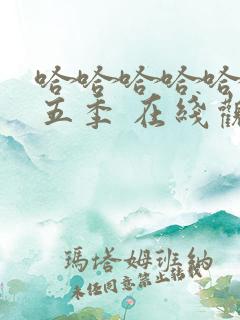 哈哈哈哈哈
五季 在线觀
瑪塔姆班納
未経同意禁止轉載